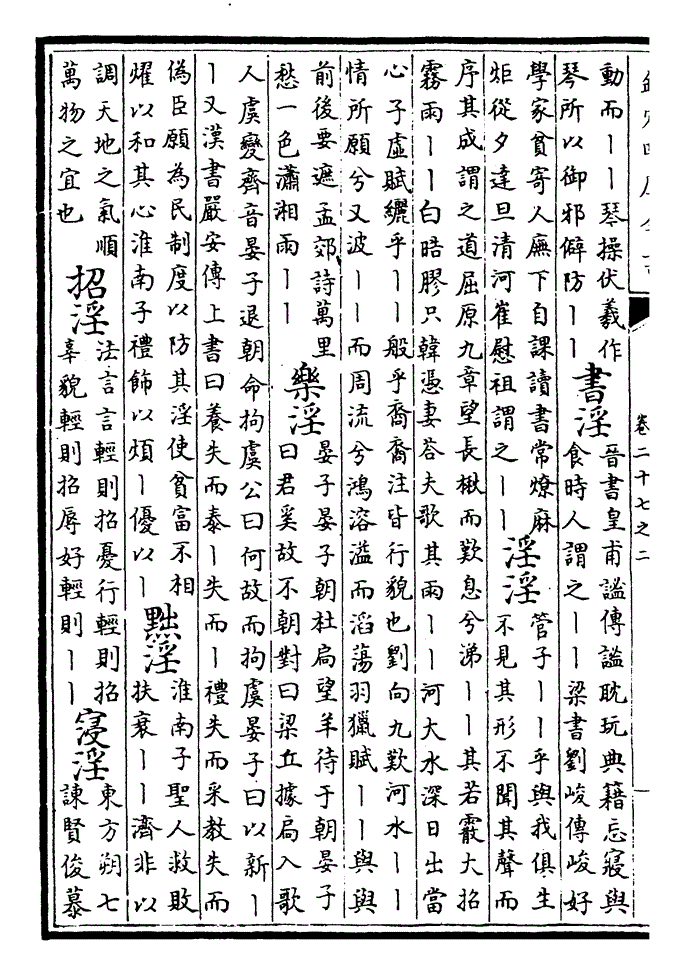 欽定四庫全書
卷二十七之二
動而丨丨琴操伏羲作
琴所以御邪僻防丨丨
書淫
晉書皇甫謐傳謐耽玩典籍忘寢與
食時人謂之丨丨梁書劉峻傳峻好
學家貧寄人廡下自課讀書常燎麻
炬從夕達旦清河崔慰祖謂之丨丨
淫淫
管子丨丨乎與我俱生
不見其形不聞其聲而
序其成謂之道屈原九章望長楸而歎息兮涕丨丨其若霰大招
霧雨丨丨白晧膠只韓憑妻荅夫歌其雨丨丨河大水深日出當
心子虛賦纚乎丨丨般乎裔裔注皆行貌也劉向九歎河水丨丨
情所願兮又波丨丨而周流兮鴻溶溢而滔蕩羽獵賦丨丨與與
前後要遮孟郊詩萬里
愁一色瀟湘雨丨丨
樂淫
晏子晏子朝杜扃望羊待于朝晏子
曰君奚故不朝對曰梁丘據扃入歌
人虞變齊音晏子退朝命拘虞公曰何故而拘虞晏子曰以新丨
丨又漢書嚴安傳上書曰養失而泰丨失而丨禮失而采教失而
偽臣願為民制度以防其淫使貧富不相
燿以和其心淮南子禮飾以煩丨優以丨
黜淫
淮南子聖人救敗
扶衰丨丨濟非以
調天地之氣順
萬物之宜也
招淫
法言言輕則招憂行輕則招
辜貌輕則招辱好輕則丨丨
寖淫
東方朔七
諫賢俊慕